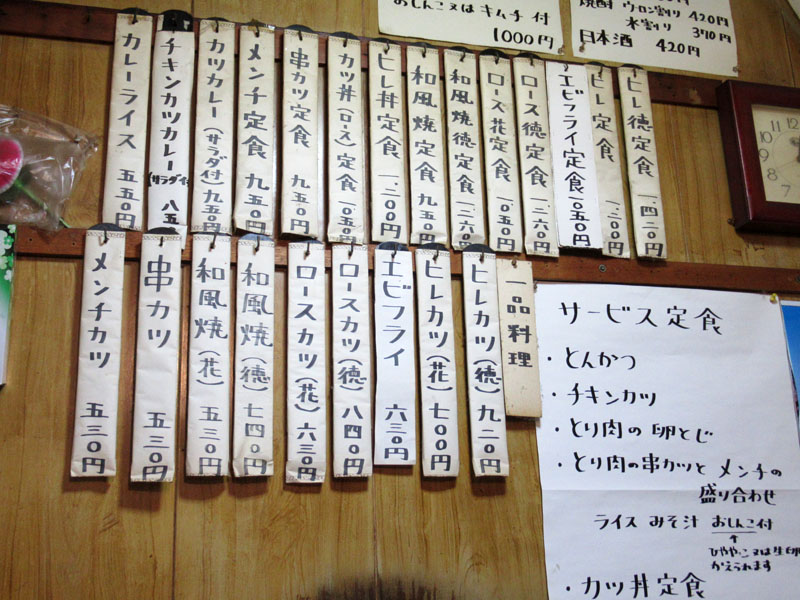 おしんこ又は キムチ 付
1000円
焼酎 ウロン割り 420円
水割り 370円
日本酒 420円
ヒレ徳定食 一、四二〇円
ヒレ定食 一、二〇〇円
エビフライ定食 一〇五〇円
ロース徳定食 一、二六〇円
ロース花定食 一〇五〇円
和風焼徳定食 一、二六〇円
和風焼定食 九五〇円
ヒレ丼定食 一、二〇〇円
カツ丼(ロース)定食 一〇五〇円
串カツ定食 九五〇円
メンチ定食 九五〇円
カツカレー(サラダ付)九五〇円
チキンカツカレー(サラダ付) 八五
カレーライス 五五〇円
一品料理
ヒレカツ(徳)九二〇円
ヒレカツ(花)七〇〇円
エビフライ 六三〇円
ロースカツ(徳)八四〇円
ロースカツ(花)六三〇円
和風焼(徳)七四〇円
和風焼(花)五三〇円
串カツ 五三〇円
メンチカツ 五三〇円
サービス定食
・とんかつ
・チキンカツ
・とり肉の卵とじ
・とり肉の串カツと メンチの
盛り合わせ
ライス みそ汁 おしんこ付
↑
ひややっこ又は生卵
かえられます
・カツ丼定食
10
9
8